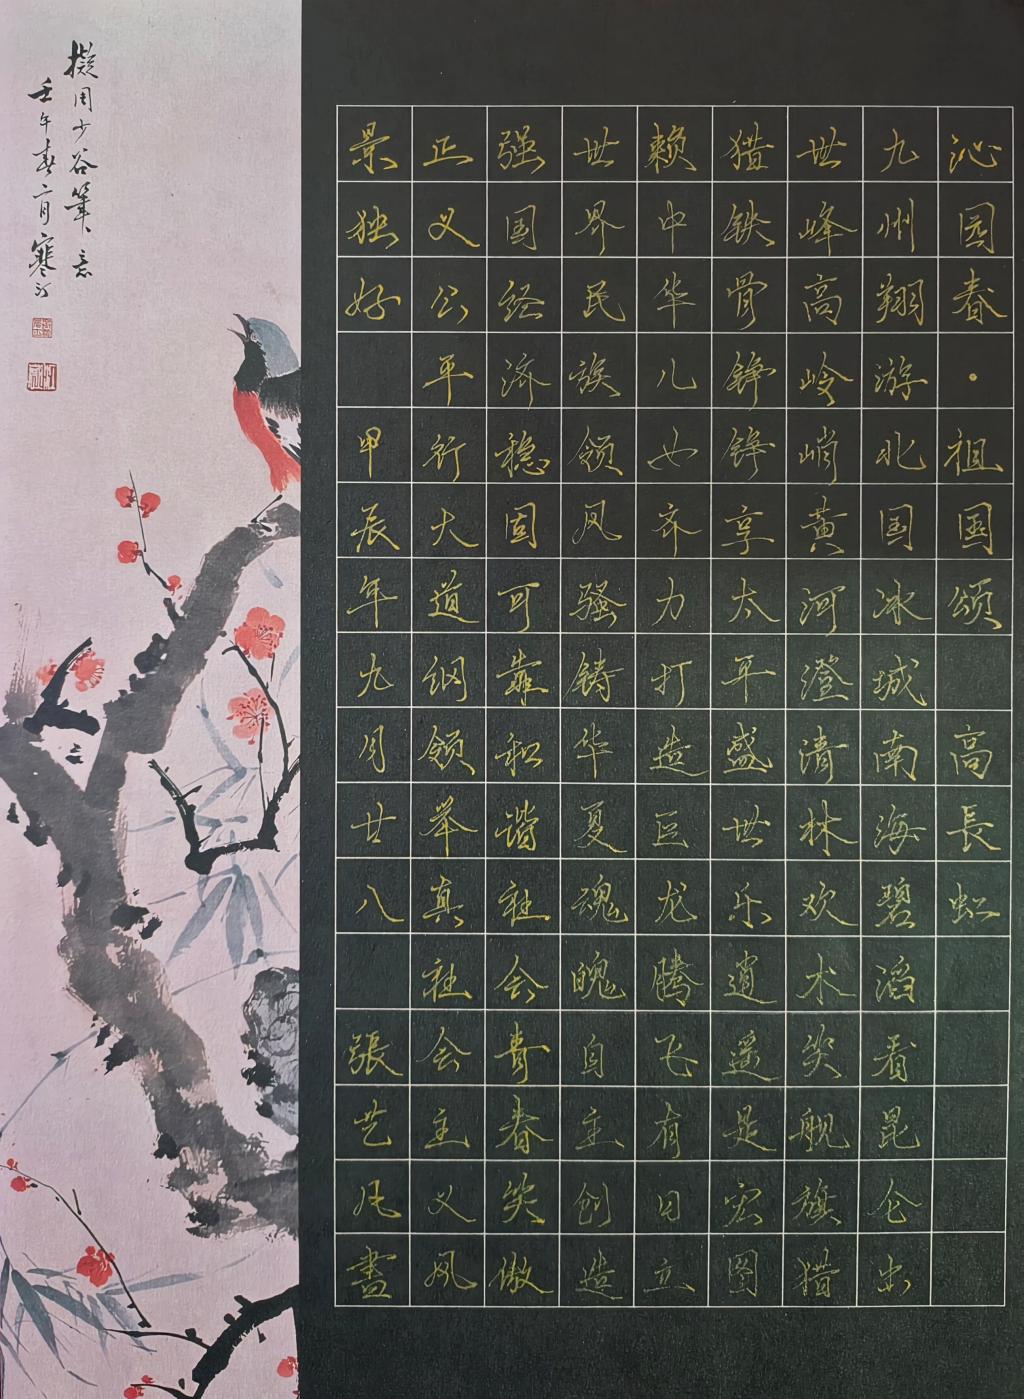 沁园春·祖国颂 高長虹
九州翔游北国冰城南海碧滔看昆仑出
世峰高岭峭黄河澄清林欢木笑舰旗猎
猎铁骨铮铮享太平盛世乐逍遥是宏图
赖中华儿女齐力打造巨龙腾飞有日立
世界民族领风骚铸华夏魂魄自主创造
强国经济稳固可靠和谐社会青春笑傲
正义公平行大道纲领举真社会主义风
景独好 甲辰年九月廿八 張艺凡書
擬周少谷筆意
壬午春月寒汀